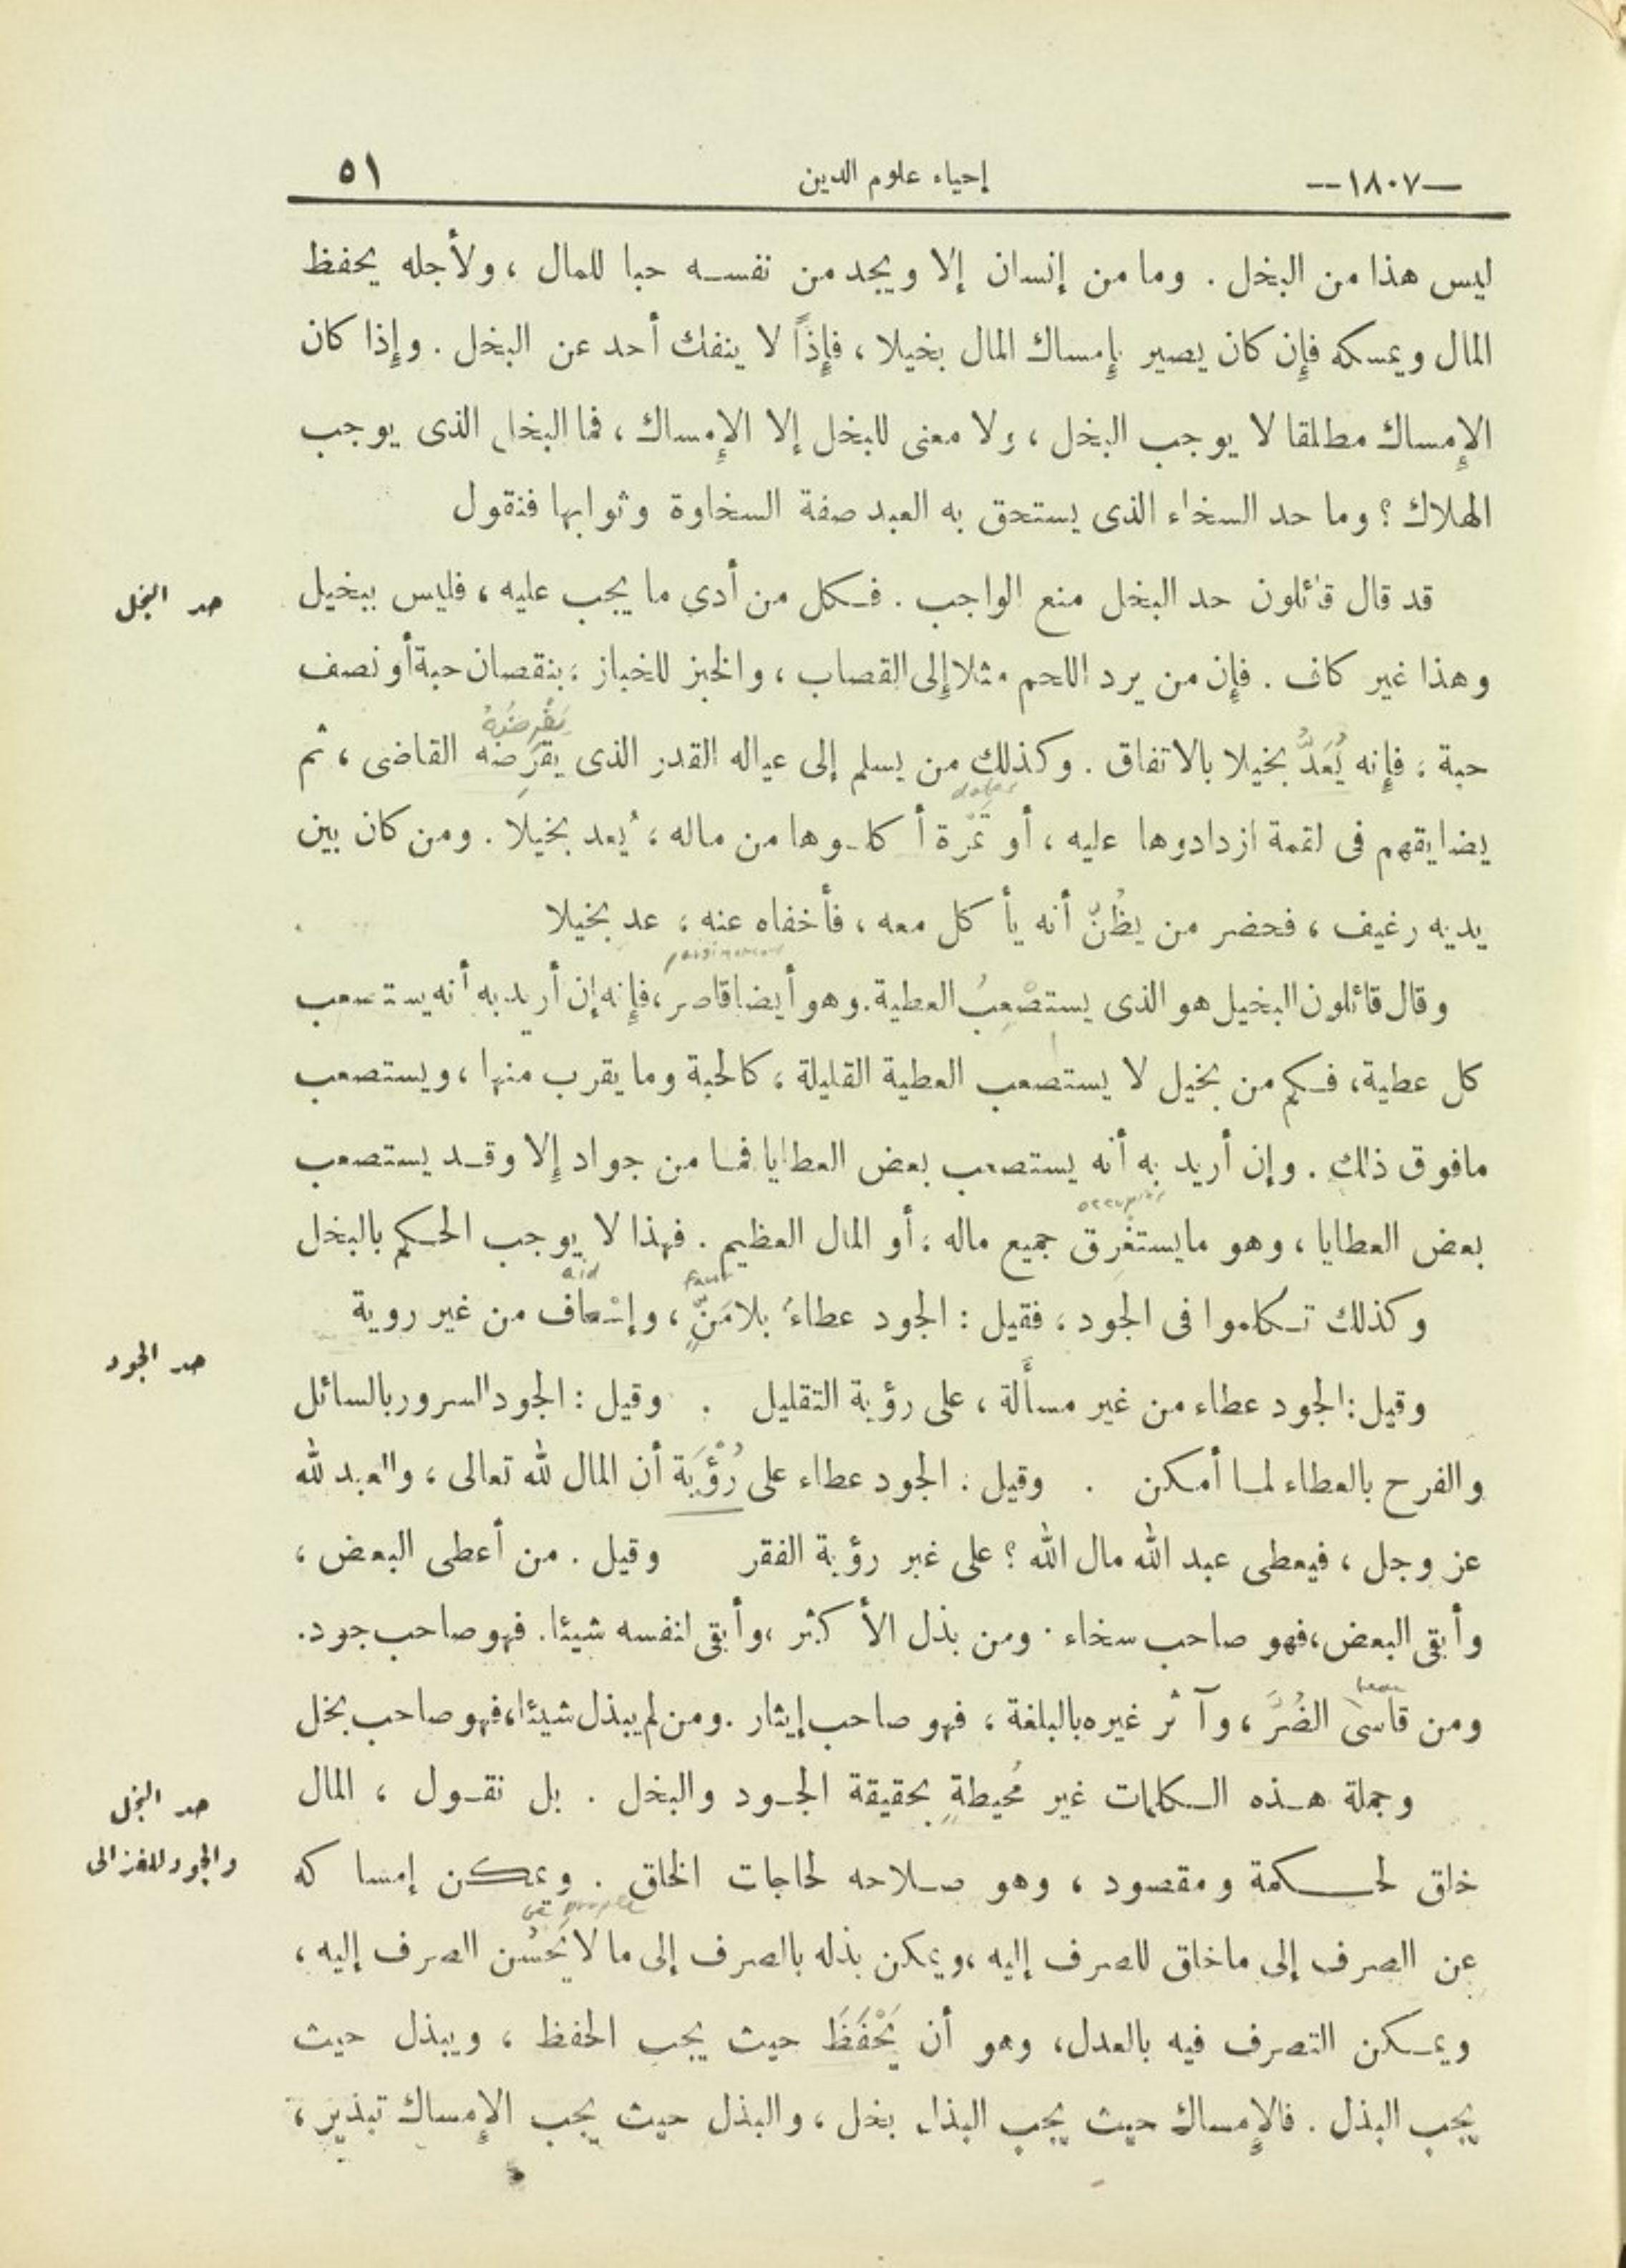 —١٨٠٧—
إحياء علوم الدين
٥١
ليس هذا من البخل . وما من إنسان إلا ويجد من نفسه حبا للمال ، ولأجله يحفظ
المال ويمسكه فإن كان يصير بإمساك المال بخيلا ، فإذاً لا ينفك أحد عن البخل . وإذا كان
الإمساك مطلقا لا يوجب البخل ، ولا معنى للبخل إلا الإمساك ، فما البخل الذى يوجب
الهلاك ؟ وما حد السخاء الذى يستحق به العبد صفة السخاوة وثوابها فنقول
حد البخل
قد قال قائلون حد البخل منع الواجب . فكل من أدى ما يجب عليه ، فليس ببخيل
وهذا غير كاف . فإن من يرد اللحم مثلا إلى القصاب ، والخبز للخباز ، بنقصان حبة أو نصف
يَفْرِضُهُ
حبة ، فإنه يُعَدُّ بخيلا بالاتفاق . وكذلك من يسلم إلى عياله القدر الذى يقرضه القاضى ، ثم
dates
يضايقهم فى لقمة ازدادوها عليه ، أو تَمْرة أكلوها من ماله ، يُعد بخيلا . ومن كان بين
يديه رغيف ، فحضر من يظُنّ أنه يأكل معه ، فأخفاه عنه ، عد بخيلا
parsimonious
وقال قائلون البخيل هو الذى يستصْعِبُ العطية . وهو أيضا قاصر ، فإنه إن أريد به أنه يستصعب
كل عطية ، فكم من بخيل لا يستصعب العطية القليلة ، كالحبة وما يقرب منها ، ويستصعب
مافوق ذلك . وإن أريد به أنه يستصعب بعض العطايا فما من جواد إلا وقد يستصعب
occupies
بعض العطايا ، وهو ما يستغرِق جميع ماله ، أو المال العظيم . فهذا لا يوجب الحكم بالبخل
aid
وكذلك تكلموا فى الجود ، فقيل : الجود عطاءُ بلا مَنٍّ ، وإسْعاف من غير روية
حد الجود
وقيل : الجود عطاء من غير مسألة ، على رؤية التقليل . وقيل : الجود السرور بالسائل
والفرح بالعطاء لما أمكن . وقيل : الجود عطاء على رُؤْيَة أن المال لله تعالى ، والعبد لله
عز وجل ، فيعطى عبد الله مال الله ؟ على غير رؤية الفقر وقيل . من أعطى البعض ،
وأبقى البعض ، فهو صاحب سخاء . ومن بذل الأكثر ، وأبقى لنفسه شيئا . فهو صاحب جود .
ومن قاسى الضُرَّ ، وآثر غيره بالبلغة ، فهو صاحب إيثار . ومن لم يبذل شيئا ، فهو صاحب بخل
حد البخل
والجود للغزالى
وجملة هذه الكلمات غير مُحيطةٍ بحقيقة الجود والبخل . بل نقول ، المال
خلق لحكمة ومقصود ، وهو صلاحه لحاجات الخلق . ويمكن إمساكه
people
عن الصرف إلى ماخلق للصرف إليه ، ويمكن بذله بالصرف إلى ما لا يَحسُن الصرف إليه ،
ويمكن التصرف فيه بالعدل ، وهو أن يَحْفَظَ حيث يجب الحفظ ، ويبذل حيث
يجب البذل . فالإمساك حيث يجب البذل بخل ، والبذل حيث يجب الإمساك تبذير ،